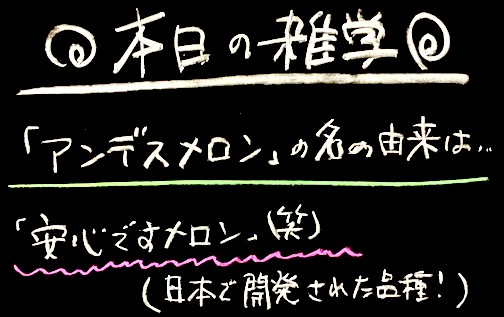 本日の雑学
「アンデスメロン」の名の由来は...
「安心ですメロン」(笑)
(日本で開発された品種!)